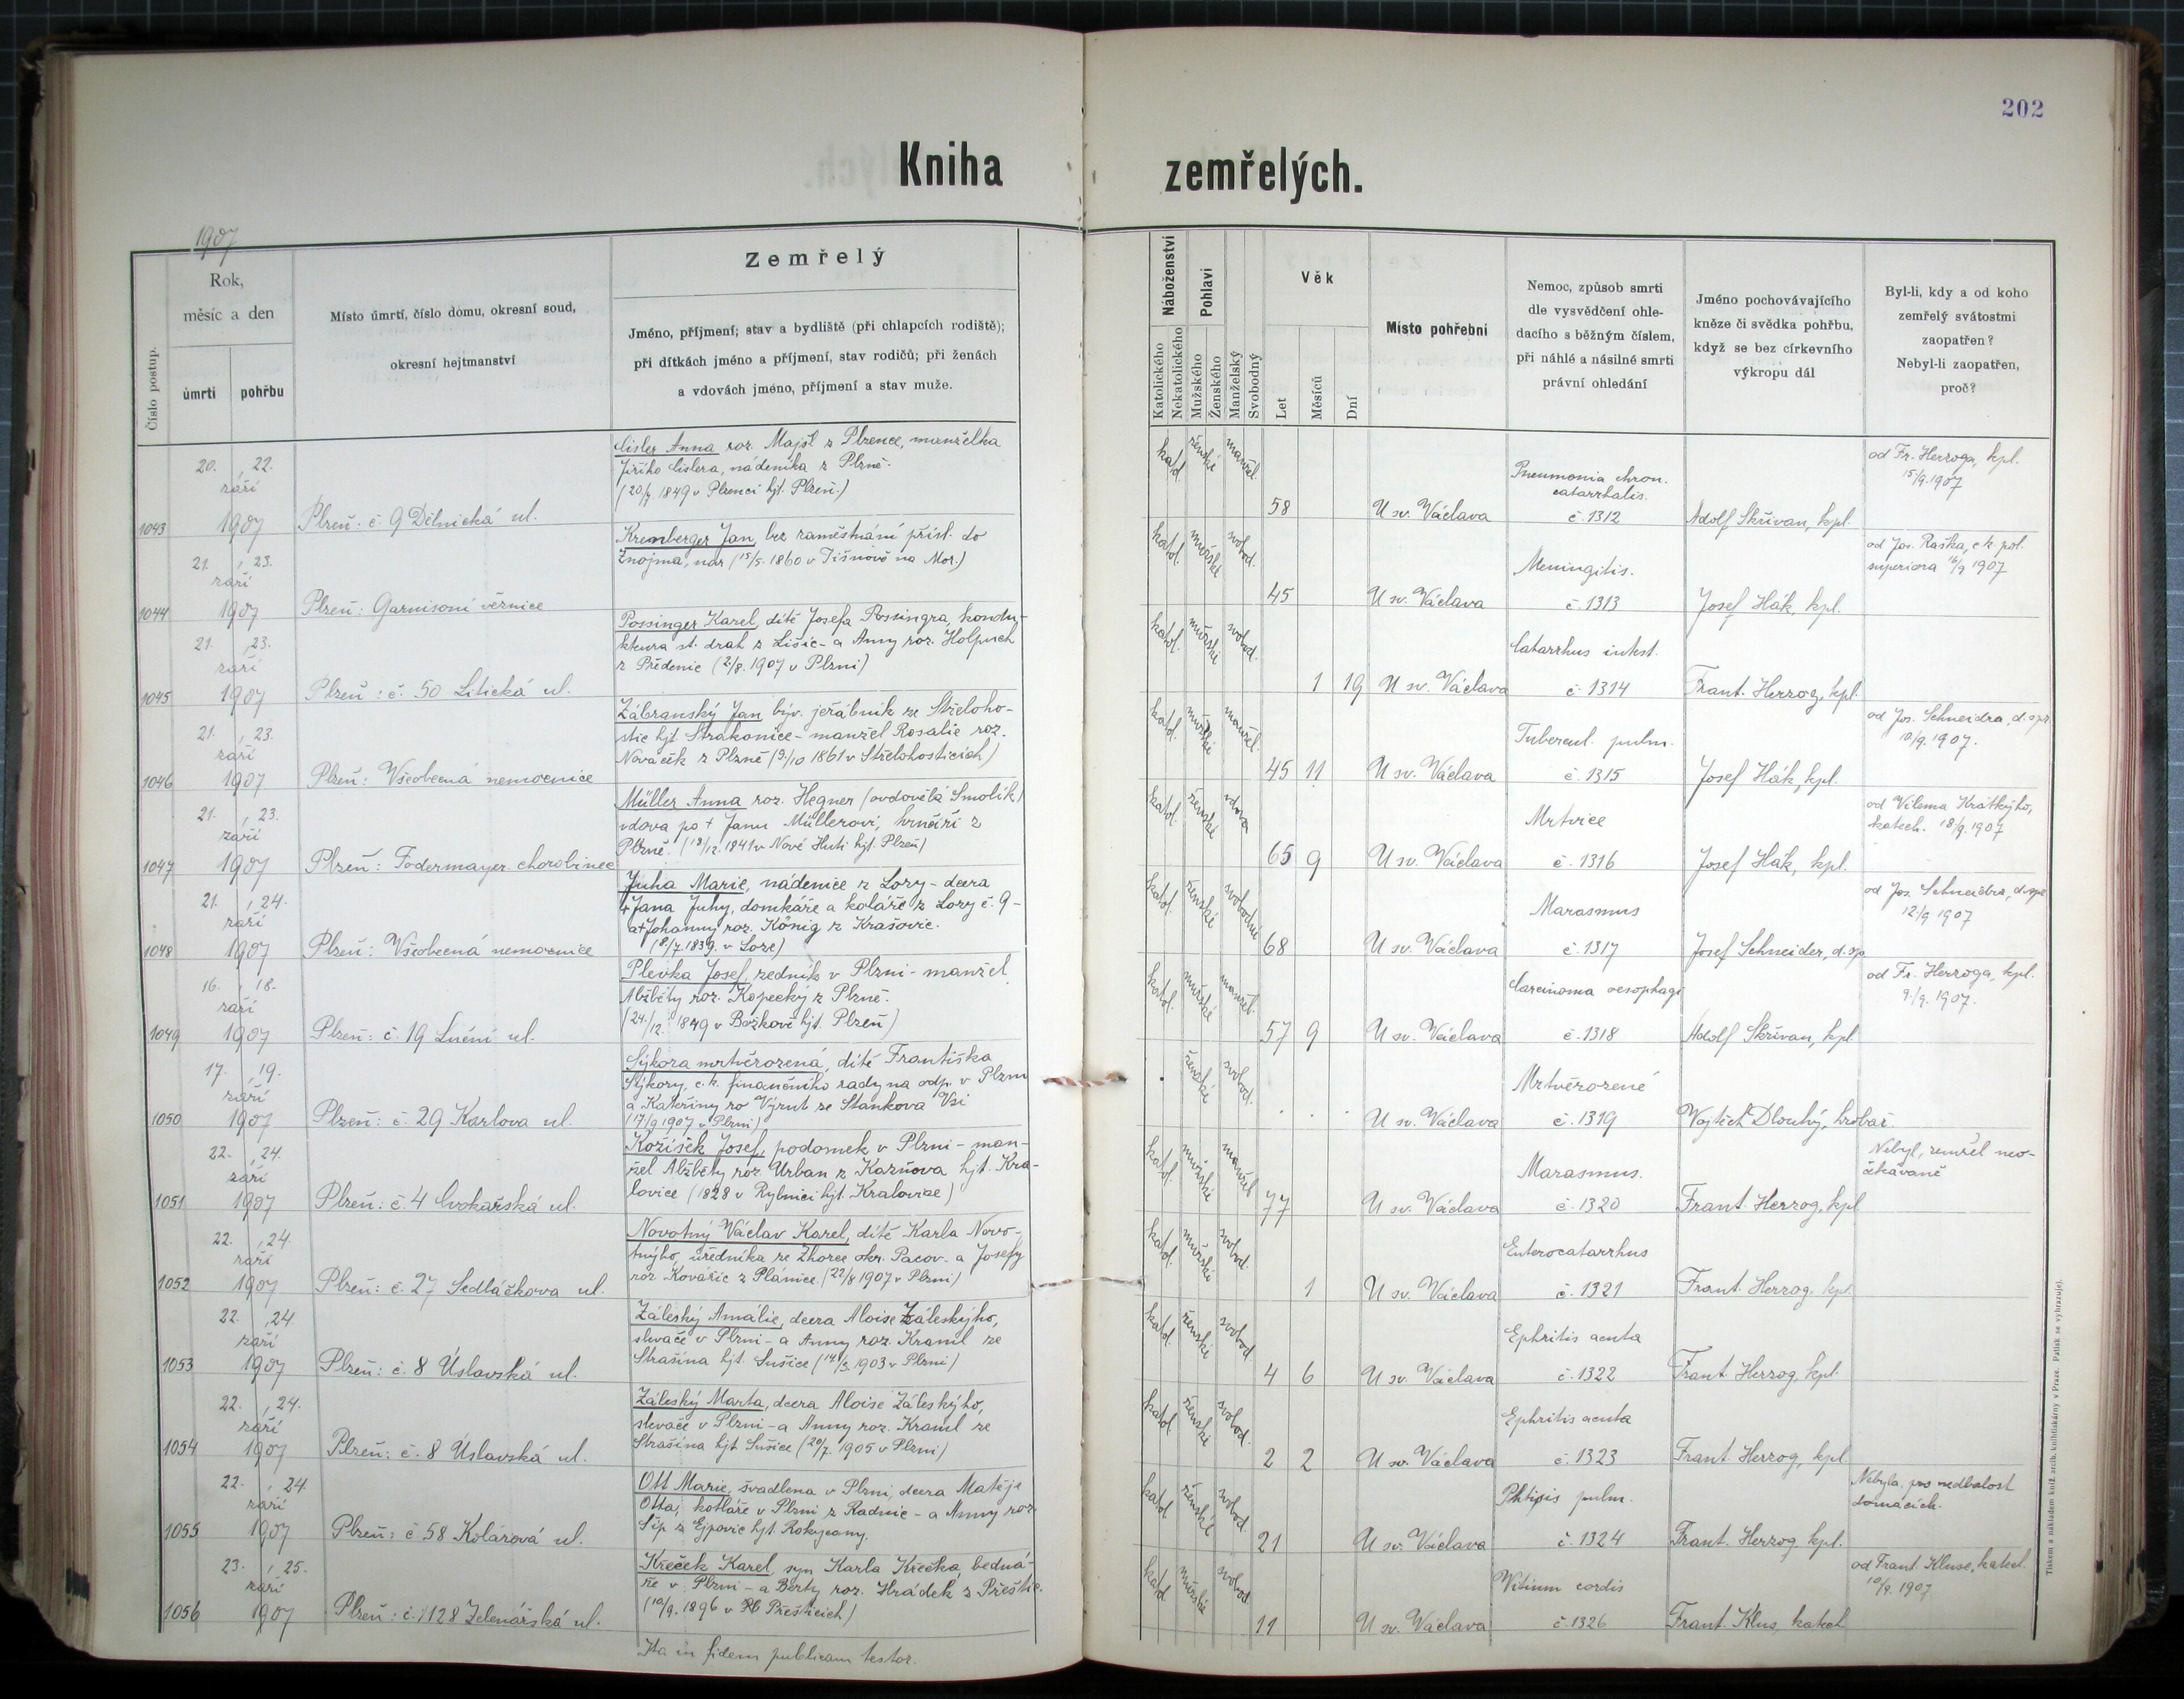 202
Kniha zemřelých.
1907
Číslo postup.
Rok,
měsíc a den
úmrtí
pohřbu
Místo úmrtí, číslo domu, okresní soud,
okresní hejtmanství
Zemřelý
Jméno, příjmení; stav a bydliště (při chlapcích rodiště);
při dítkách jméno a příjmení, stav rodičů; při ženách
a vdovách jméno, příjmení a stav muže.
Náboženství
Katolického
Nekatolického
Pohlaví
Mužského
Ženského
Manželský
Svobodný
Věk
Let
Měsíců
Dní
Místo pohřební
Nemoc, způsob smrti
dle vysvědčení ohle-
dacího s běžným číslem,
při náhlé a násilné smrti
právní ohledání
Jméno pochovávajícího
kněze či svědka pohřbu,
když se bez církevního
výkropu dál
Byl-li, kdy a od koho
zemřelý svátostmi
zaopatřen?
Nebyl-li zaopatřen,
proč?
1043
20. , 22.
září
1907
Plzeň: č. 9 Dělnická ul.
Cisler Anna roz. Majšl z Plzence, manželka
Jiřího Cislera, nádeníka z Plzně.
(20/7. 1849 v Plzenci hjt. Plzeň.)
katol. ženské manžel.
58
U sv. Václava
Pneumonia chron.
catarrhalis.
č. 1312
Adolf Skřivan, kpl.
od Fr. Herzoga, kpl.
15/9. 1907
1044
21. , 23.
září
1907
Plzeň: Garnisoní věznice
Kremberger Jan, bez zaměstnání přísl. do
Znojma, nar. (15/5. 1860 v Tišnově na Mor.)
katol. mužské svobod.
45
U sv. Václava
Meningitis.
č. 1313
Josef Hák, kpl.
od Jos. Raška, c. k. pol.
superiora 16/9 1907
1045
21. , 23.
září
1907
Plzeň: č. 50 Litická ul.
Possinger Karel, dítě Josefa Possingra, kondu-
ktera st. drah z Lišic - a Anny roz. Holpuch
z Předenic (2/8. 1907 v Plzni)
katol. mužské svobod.
1 19
U sv. Václava
Catarrhus intest.
č. 1314
Frant. Herzog, kpl.
1046
21. , 23.
září
1907
Plzeň: Všeobecná nemocnice
Zábranský Jan býv. jeřábník ze Střeloho-
stic hjt Strakonice - manžel Rosalie roz.
Nováček z Plzně (9/10 1861 v Střelohosticích)
katol. mužské manžel.
45 11
U sv. Václava
Tubercul. pulm.
č. 1315
Josef Hák, kpl.
od Jos. Schneidra, d. spr.
10/9. 1907.
1047
21. , 23.
září
1907
Plzeň: Fodermayer. chorobinec
Müller Anna roz. Hegner (ovdovělá Smolík)
vdova po + Janu Müllerovi, hrnčíři z
Plzně. (13/12. 1841 v Nové Huti hjt. Plzeň)
katol. ženské vdova
65 9
U sv. Václava
Mrtvice
č. 1316
Josef Hák, kpl.
od Viléma Krátkýho,
katech. 18/9. 1907
1048
21. , 24.
září
1907
Plzeň: Všeobecná nemocnice
Juha Marie, nádenice z Lozy - dcera
+ Jana Juhy, domkáře a koláře z Lozy č. 9 -
a + Johanny roz. König z Krašovic.
(8/7. 1839. v Loze)
katol. ženské svobodné
68
U sv. Václava
Marasmus
č. 1317
Josef Schneider, d. sp.
od Jos. Schneidra, d. spr.
12/9 1907
1049
16. , 18.
září
1907
Plzeň: č. 19 Luční ul.
Plevka Josef, zedník v Plzni - manžel
Alžběty roz. Kopecký z Plzně.
(24./12. 1849 v Božkově hjt. Plzeň)
katol. mužské manžel.
57 9
U sv. Václava
Carcinoma oesophagi
č. 1318
Adolf Skřivan, kpl.
od Fr. Herzoga, kpl.
9/9. 1907.
1050
17. , 19.
září
1907
Plzeň: č. 29 Karlova ul.
Sýkora mrtvěrozená, dítě Františka
Sýkory, c. k. finančního rady na odp. v Plzni
a Kateřiny ro Výrut ze Stankova Vsi
(17/9 1907 v Plzni)
ženské svobod.
U sv. Václava
Mrtvěrozené
č. 1319
Vojtěch Dlouhý, hrobař.
1051
22. , 24.
září
1907
Plzeň: č. 4 Cvokařská ul.
Kožíšek Josef, podomek v Plzni - man-
žel Alžběty roz. Urban z Kazňova hjt. Kra-
lovice (1828 v Rybnici hjt. Kralovice)
katol. mužské manžel
77
U sv. Václava
Marasmus.
č. 1320
Frant. Herzog, kpl.
Nebyl, zemřel neo-
čekávaně
1052
22. , 24.
září
1907
Plzeň: č. 27 Sedláčkova ul.
Novotný Václav Karel, dítě Karla Novo-
tnýho, úředníka ze Zhorce okr. Pacov. a Josefy
roz. Kovářic z Plánice. (22/8 1907 v Plzni)
katol. mužské svobod.
1
U sv. Václava
Enterocatarrhus
č. 1321
Frant. Herzog, kpl.
1053
22. , 24.
září
1907
Plzeň: č. 8 Úslavská ul.
Záleský Amálie, dcera Aloise Záleskýho,
slevače v Plzni - a Anny roz. Kraml ze
Strašína hjt. Sušice (14/3. 1903 v Plzni)
katol. ženské svobod.
4 6
U sv. Václava
Ephritis acuta
č. 1322
Frant. Herzog, kpl.
1054
22. , 24.
září
1907
Plzeň: č. 8 Úslavská ul.
Záleský Marta, dcera Aloise Záleskýho,
slevače v Plzni - a Anny roz. Kraml ze
Strašína hjt Sušice (20/7. 1905 v Plzni)
katol. ženské svobod.
2 2
U sv. Václava
Ephritis acuta
č. 1323
Frant. Herzog, kpl.
1055
22. , 24.
září
1907
Plzeň: č. 58 Kolárová ul.
Ott Marie, švadlena v Plzni, dcera Matěje
Otta, kotláře v Plzni z Radnic - a Anny roz.
Šíp z Ejpovic hjt. Rokycany.
katol. ženské svobod.
21
U sv. Václava
Phtisis pulm.
č. 1324
Frant. Herzog, kpl.
Nebyla, pro nedbalost
domácích.
1056
23. , 25.
září
1907
Plzeň: č. 1128 Zelenářská ul.
Křeček Karel, syn Karla Křečka, bedná-
ře v Plzni - a Berty roz. Hrádek z Přeštic.
(10/9. 1896 v Přešticích)
katol. mužské svobod.
11
U sv. Václava
Vitium cordis
č. 1326
Frant. Klus, katech.
od Frant. Kluse, katech.
10/9. 1907
Ita in fidem publicam testor.
Tiskem a nákladem kníž. arcib. knihtiskárny v Praze. Patisk se vyhrazuje.